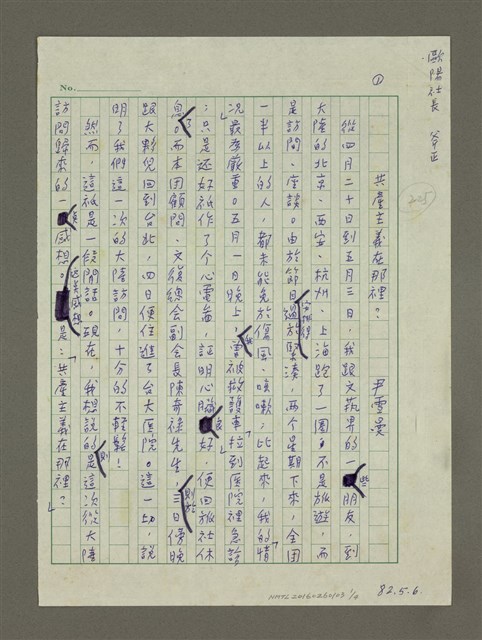 歐陽社長 斧正
①
205
共產主義在那裡? 尹雪曼
從四月二十日到五月三日,我跟文藝界的一些朋友,到
大陸的北京、西安、杭州、上海跑了一圈。不是旅遊,而
是訪問、座談。由於節目安排得過於緊湊,兩個星期下來,全团
一半以上的人,都未能免於傷風、咳嗽;比起來,我的情
況最為嚴重。五月一日晚上,曾被救護車拉到医院裡急診
;只是还好祇作了个心電圖,証明心臟良好,便回旅社休
息了。而本团顧問、文復總会副会長陳奇祿先生,則於三日傍晚
跟大夥兒回到台北,四日便住進了台大医院。這一切,說
明了我們這一次的大陸訪問,十分的不輕鬆!
然而,這祇是一段閒話。現在,我想說的則是這次從大陸
訪問歸來的一点感想。这点感想是:「共產主義在那裡?」
No.
NMTL20160260103 1/4
82.5.6.